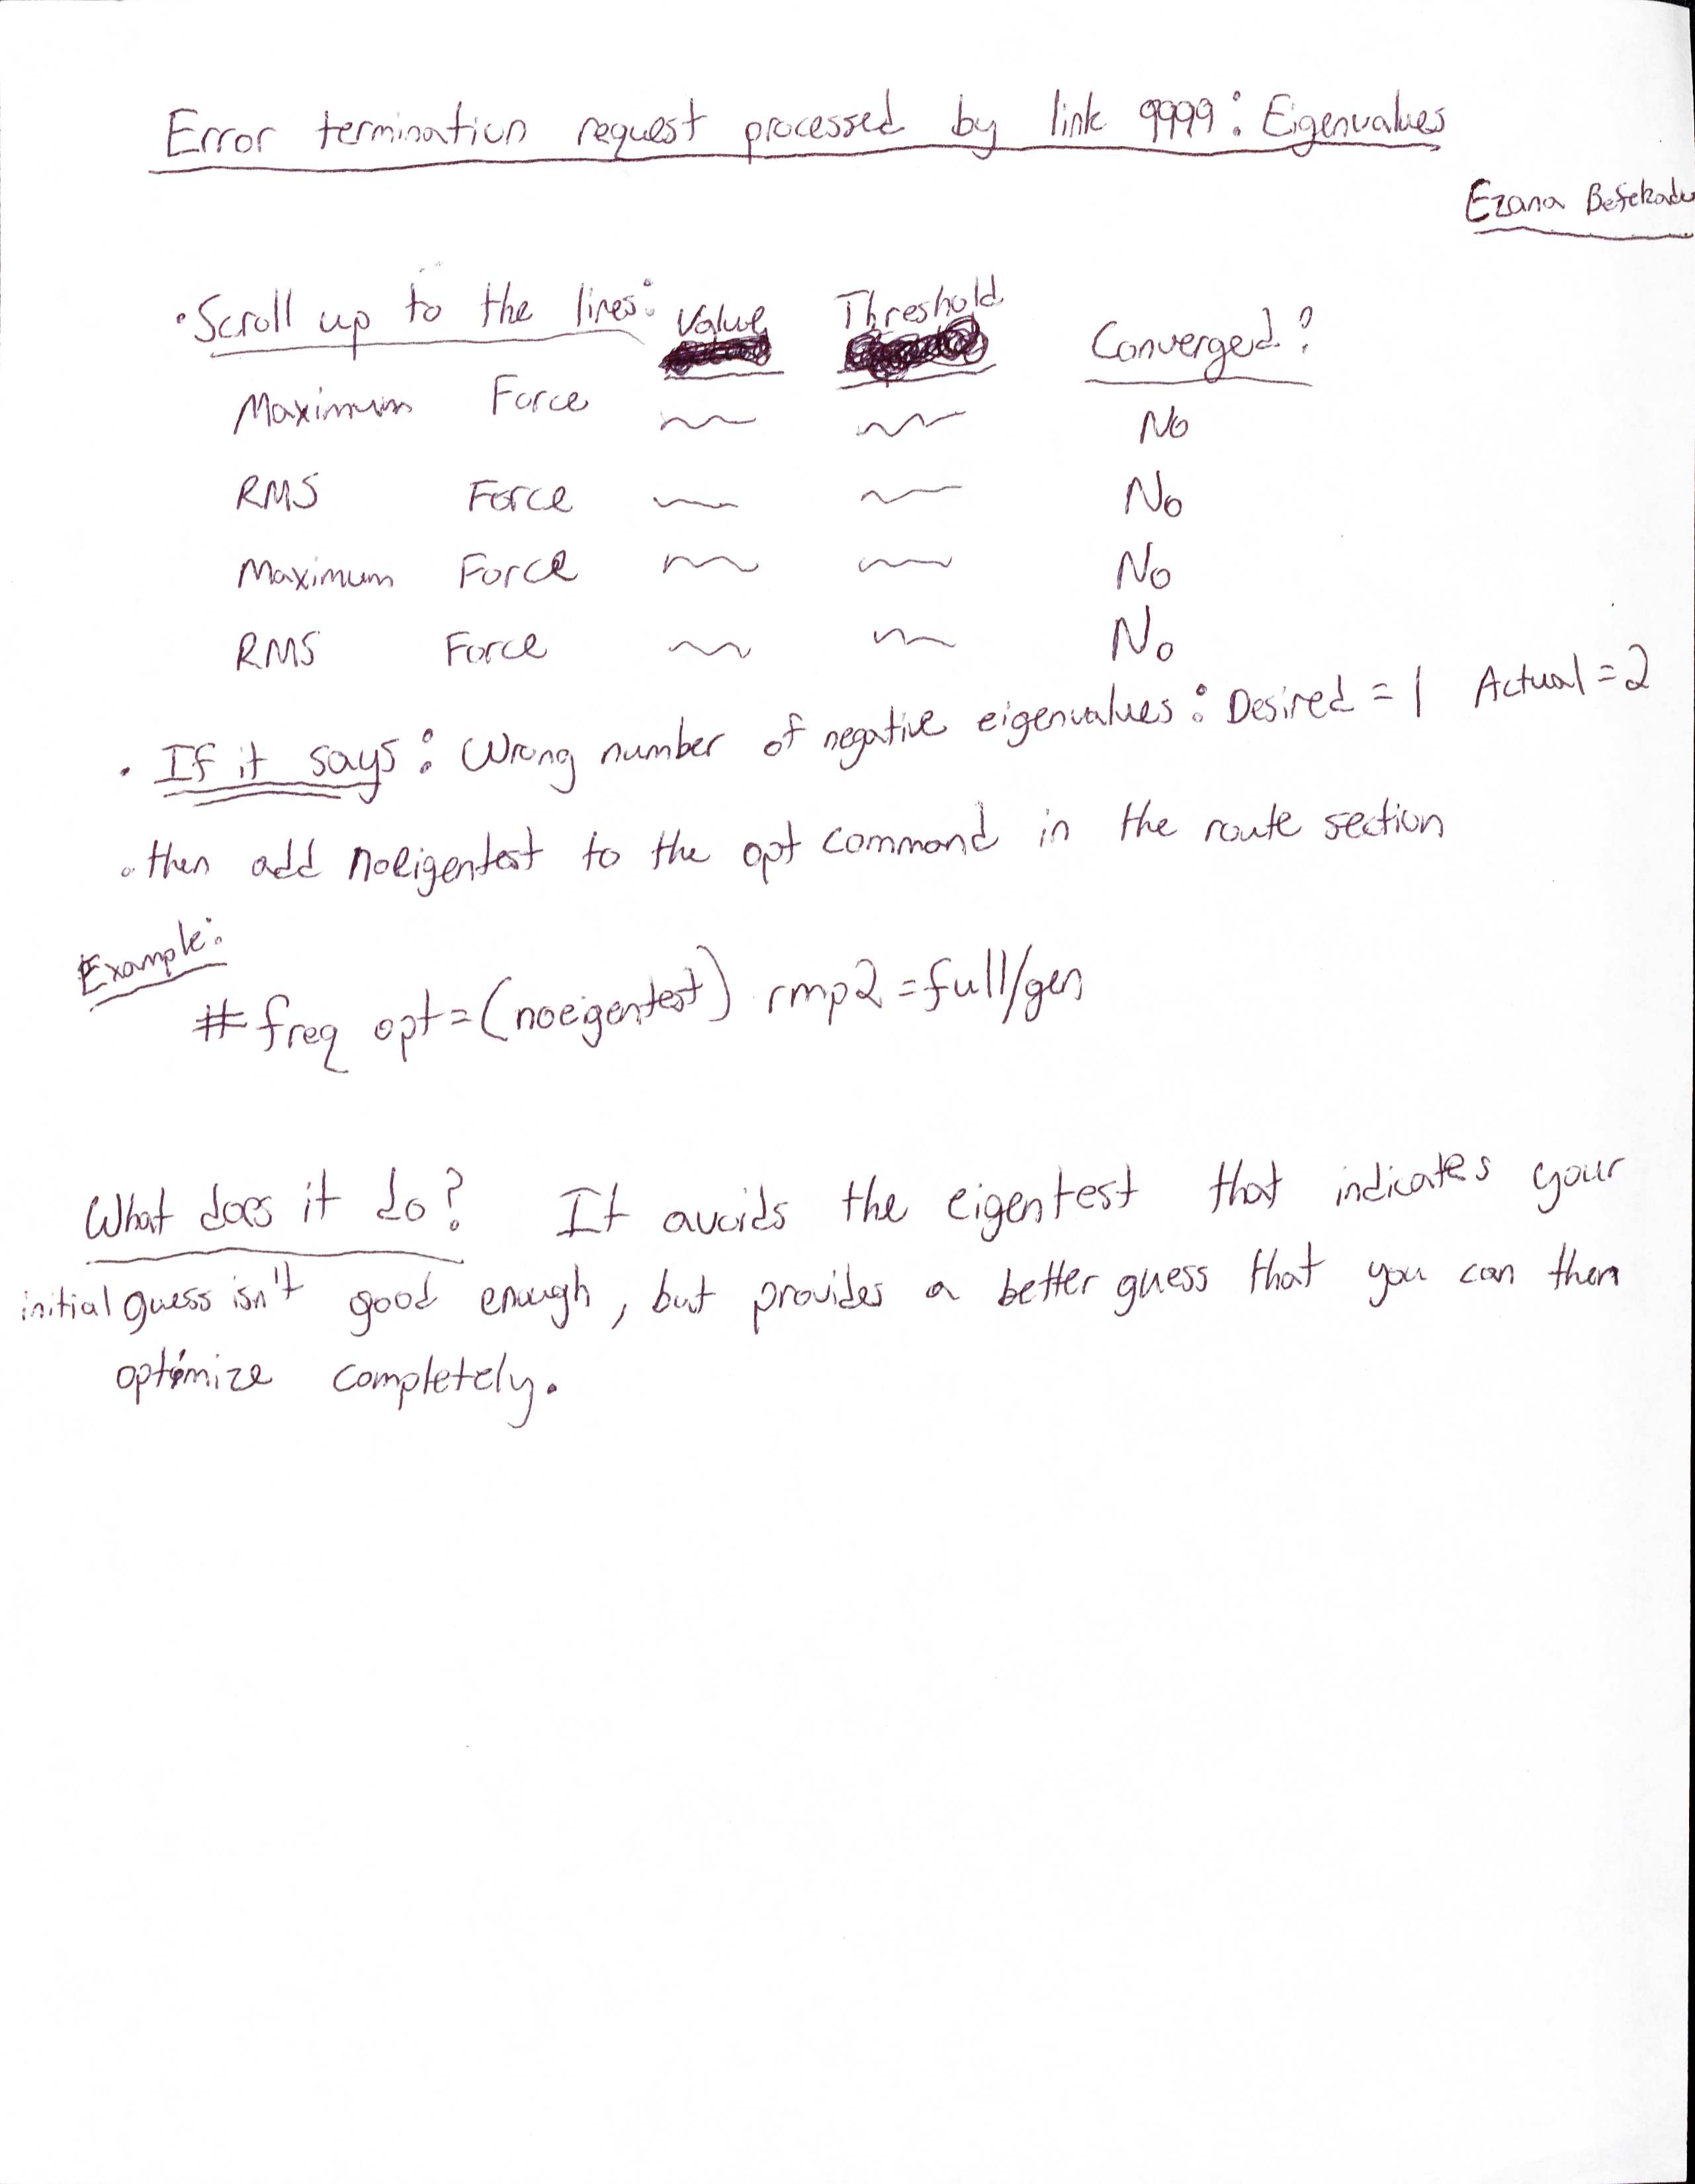 Error termination request processed by link 9999: Eigenvalues
Ezana Befekadu
• Scroll up to the lines: Value Threshold Converged?
Maximum Force No
RMS Force No
Maximum Force No
RMS Force No
• If it says: Wrong number of negative eigenvalues: Desired = 1 Actual = 2
• then add noeigentest to the opt command in the route section
Example:
# freq opt=(noeigentest) rmp2=full/gen
What does it do? It avoids the eigentest that indicates your
initial guess isn't good enough, but provides a better guess that you can then
optimize completely.